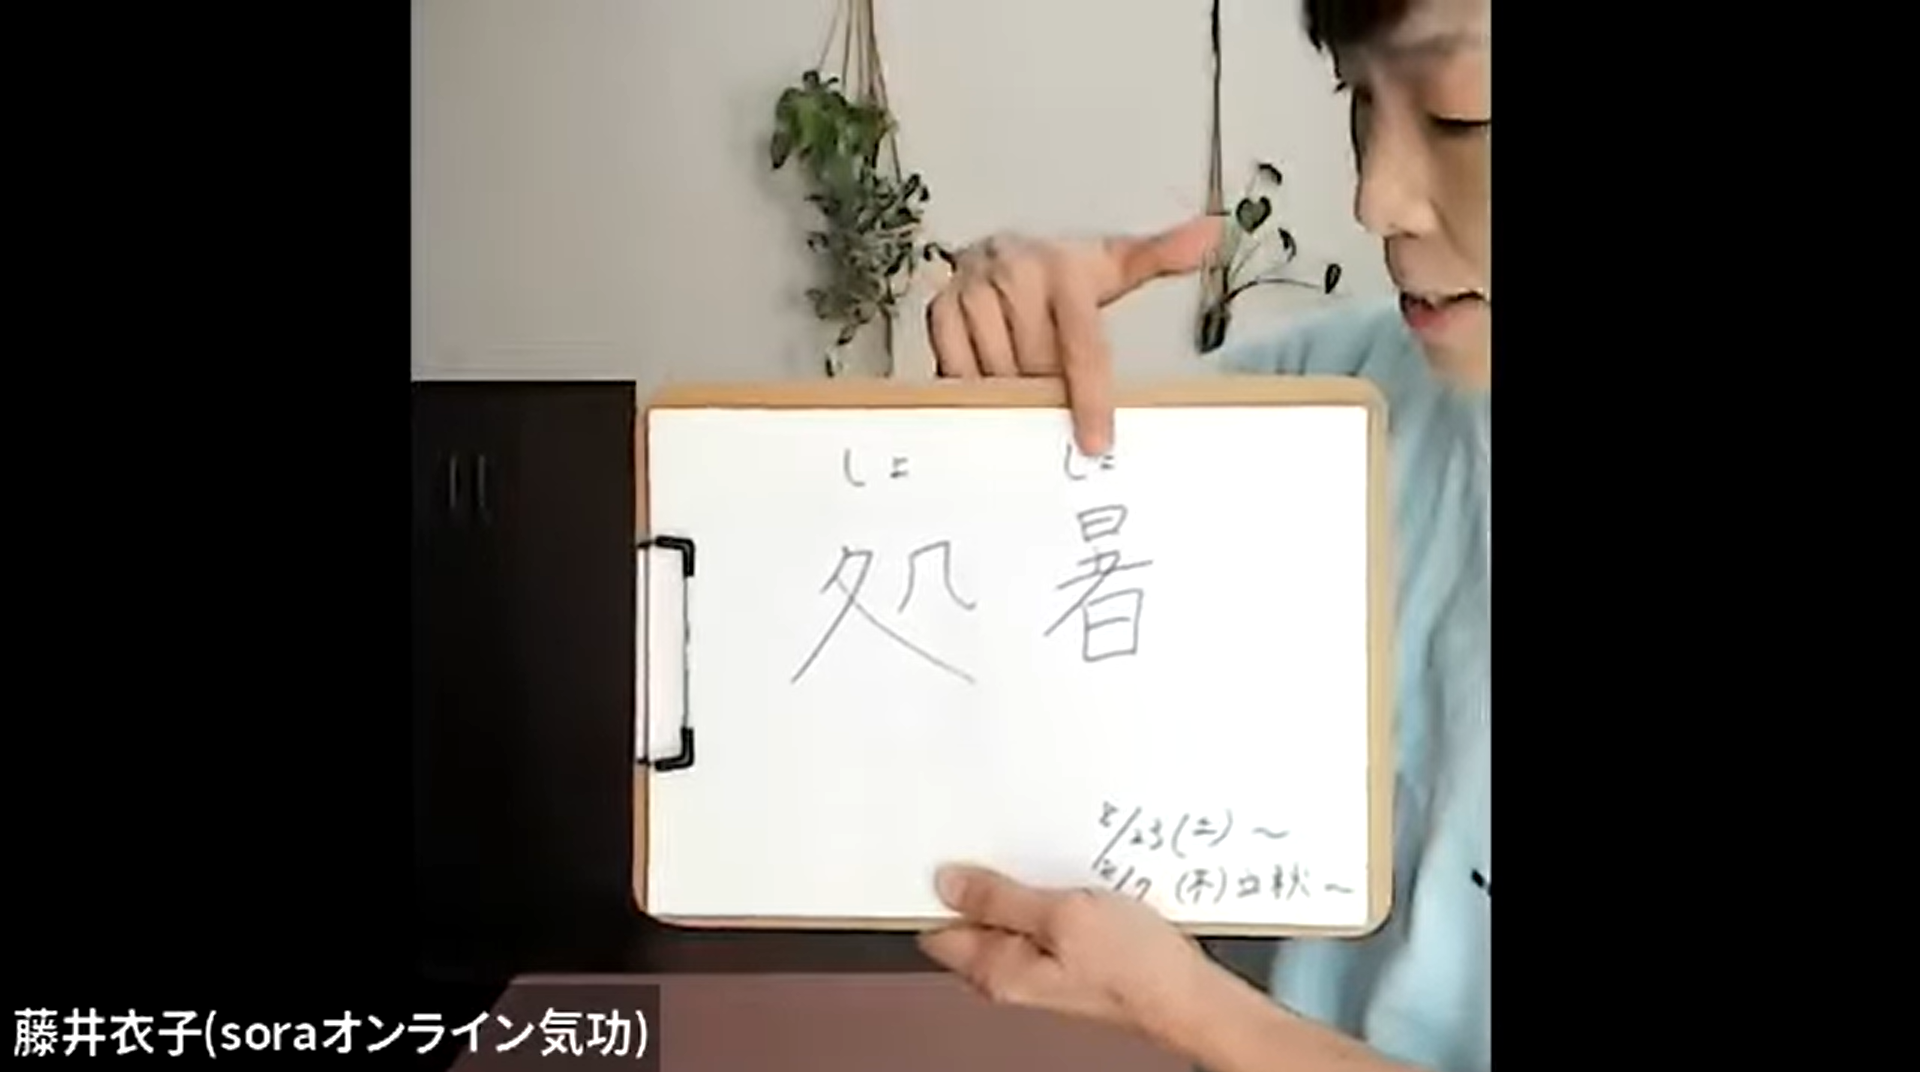 しょ しょ
処暑
8/23(土)～
8/7(木)立秋～
藤井衣子(soraオンライン気功)